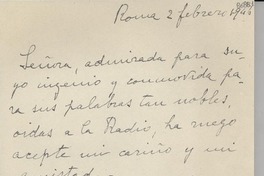 Roma 2 febrero 1946
Señora, admirada para su
yo ingenio y conmovida pa
ra sus palabras tan nobles,
oidas a la Radio, ha ruego
acepte mi cariño y mi
amistad